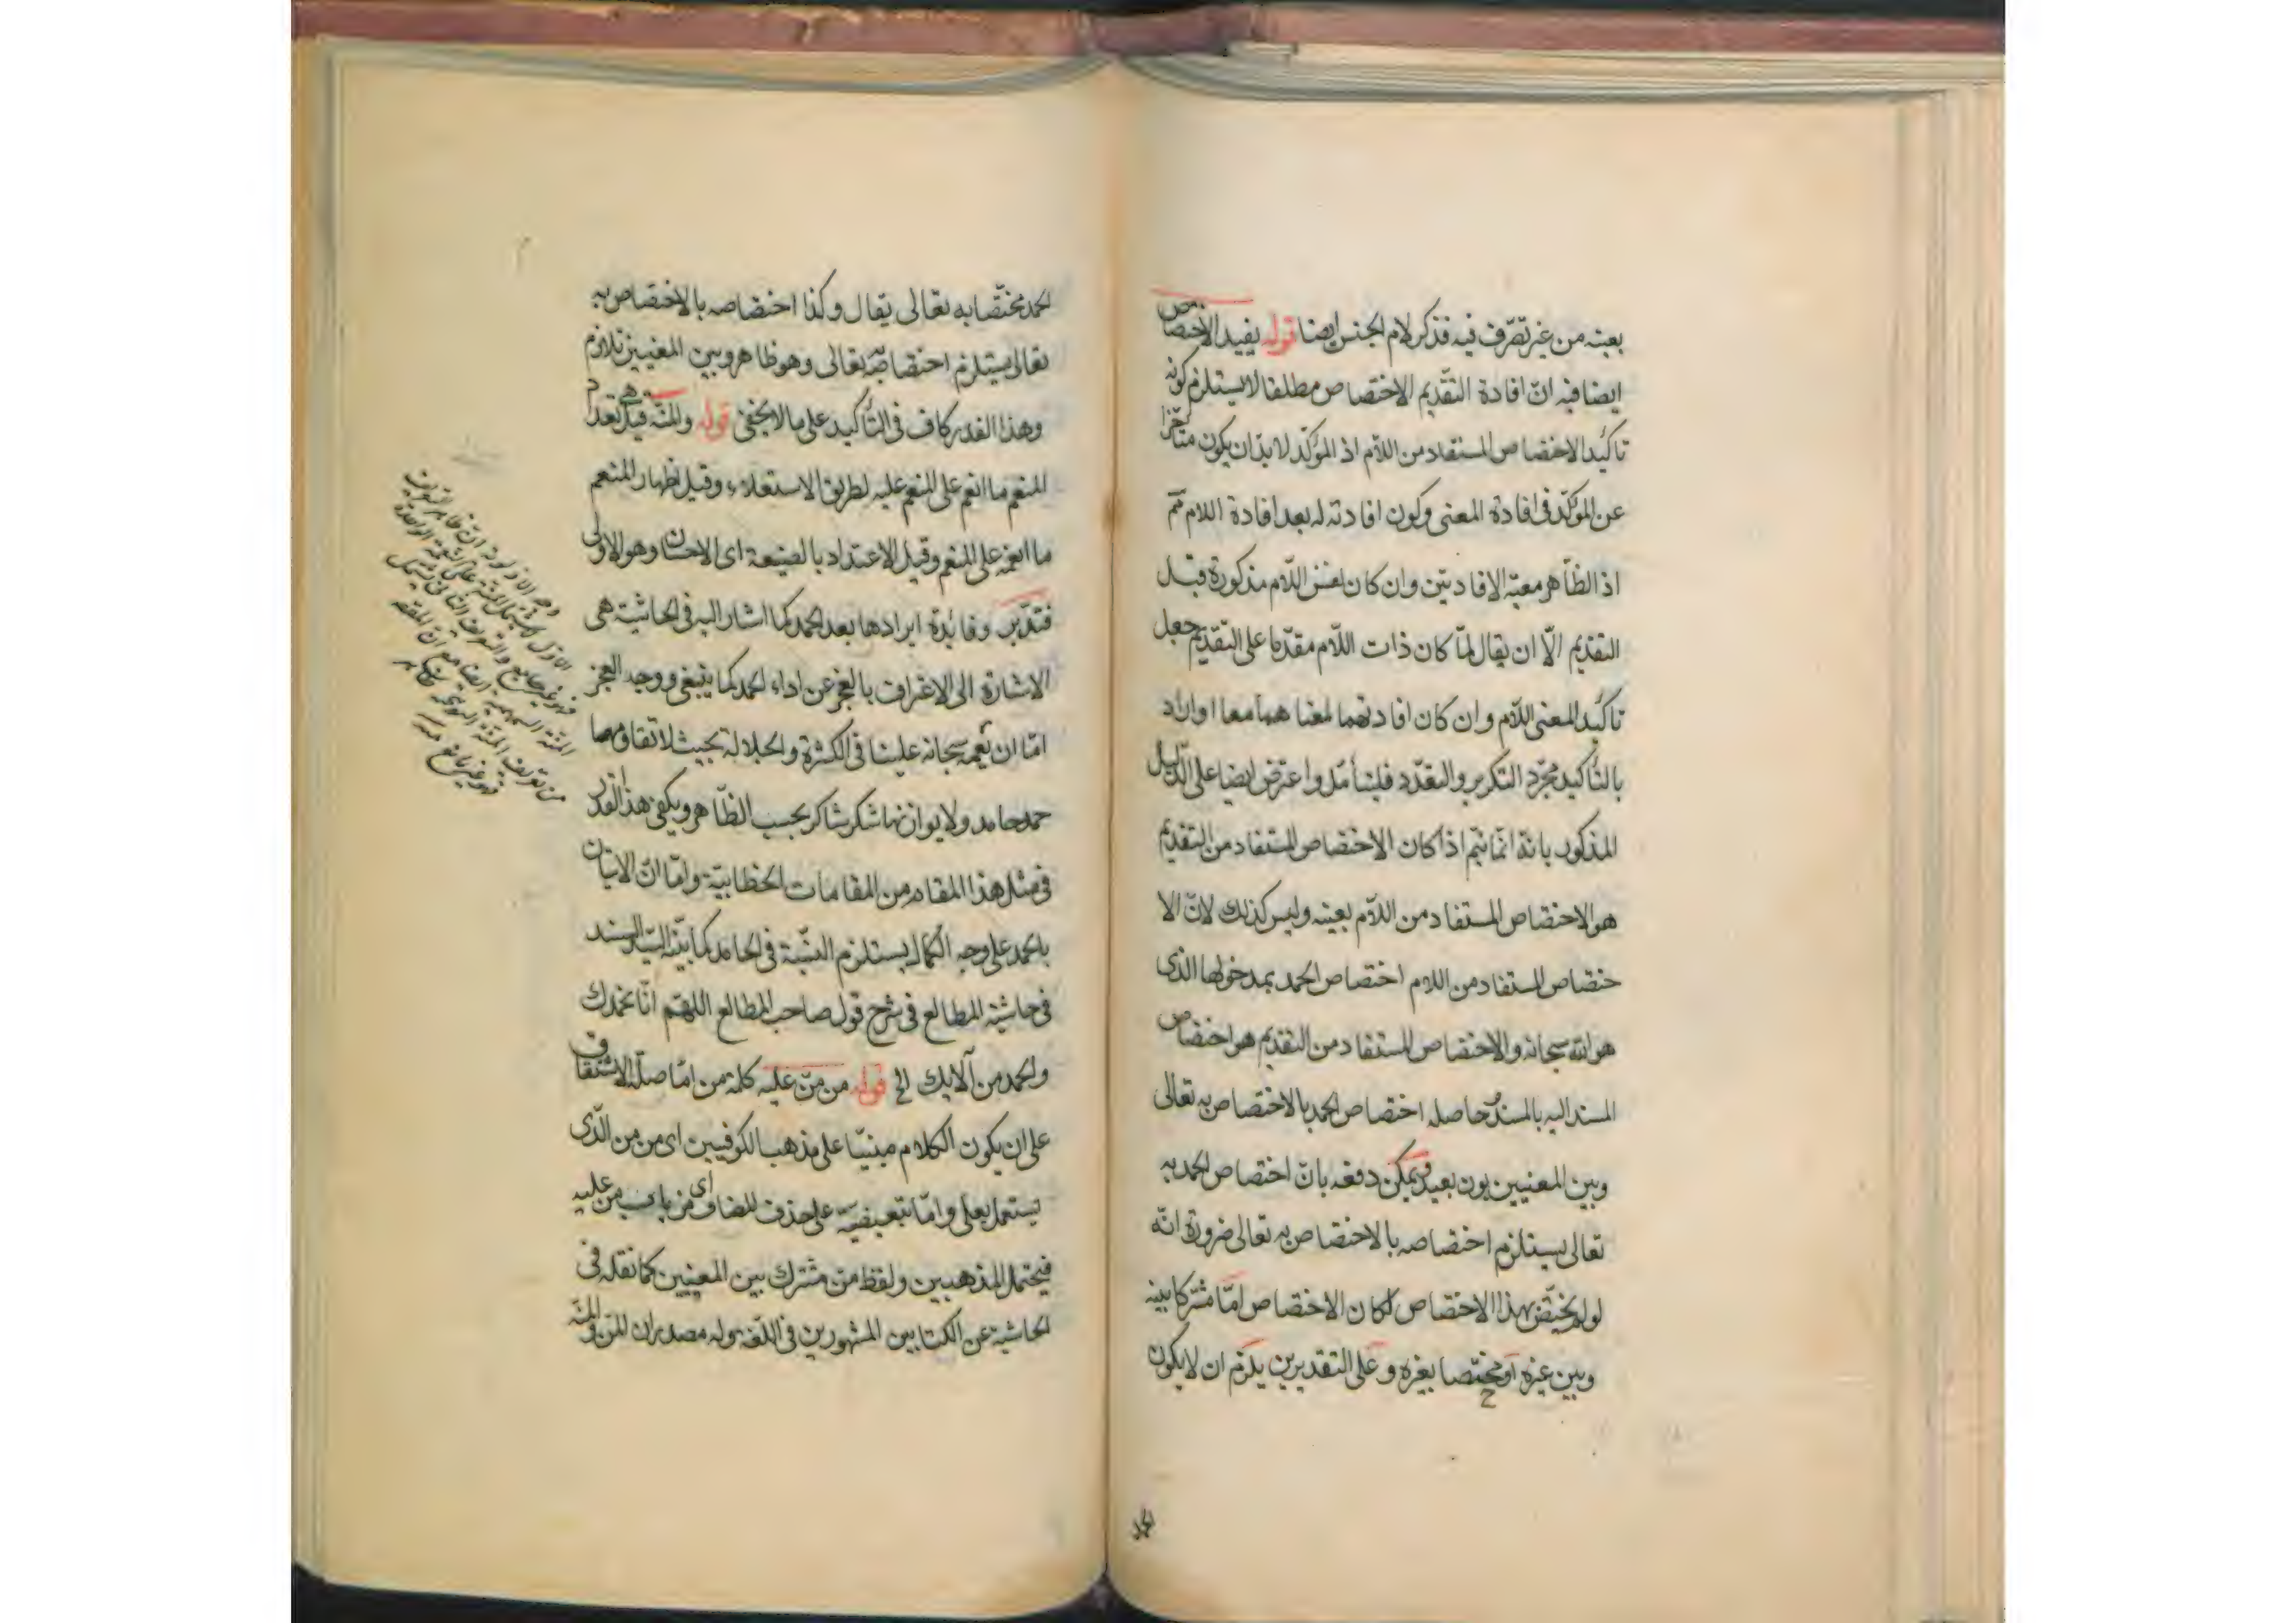 بعينه من غير تصرّف فيه فذكر لام الجنس ايضا قوله يفيد الاختصاص
ايضا فيه انّ افادة التّقديم الاختصاص مطلقا لا يستلزم كونه
تاكيد الاختصاص المستفاد من اللّام اذ المؤكّد لا بدّ ان يكون متأخّرا
عن المؤكّد فى افادة المعنى وكون افادته له بعد افادة اللام ثمّ
اذ الظّاهر معيّة الافادتين وان كان نفس اللّام مذكورة قبل
التقديم الّا ان يقال لمّا كان ذات اللّام مقدّما على التّقديم جعل
تاكيد المعنى اللّام وان كان افادتهما لمعناهما معا او اراد
بالتّأكيد مجرّد التكرير والتعدّد فليتأمّل واعترض ايضا على الدّليل
المذكور بانّه انّما يتم اذا كان الاختصاص المستفاد من التقديم
هو الاختصاص المستفاد من اللّام بعينه وليس كذلك لانّ الا
ختصاص المستفاد من اللام اختصاص الحمد بمدخولها الذى
هو الله سبحانه والاختصاص المستفاد من التقديم هو اختصاص
المسند اليه بالمسند وحاصله اختصاص الحمد بالاختصاص به تعالى
وبين المعنيين بون بعيد ويمكن دفعه بانّ اختصاص الحمد به
تعالى يستلزم اختصاصه بالاختصاص به تعالى ضرورة انّه
لو لم يختصّ بهذا الاختصاص لكان الاختصاص امّا مشتركا بينه
وبين غيره او مختصّا بغيره وعلى التقديرين يلزم ان لا يكون
الحمد
الحمد مختصّا به تعالى يقال وكذا اختصاصه بالاختصاص به
تعالى يستلزم اختصاصه به تعالى وهو ظاهر وبين المعنيين تلازم
وهذا القدر كاف فى التّأكيد على ما لا يخفى قوله والمنّة قيل هى تعداد
المنعم ما انعم على المنعم عليه بطريق الاستعلاء وقيل اظهار المنعم
ما انعمه على المنعم وقيل الاعتداد بالصنيعة اى الاحسان وهو الاولى
فتدبّر وفائدة ايرادها بعد الحمد كما اشار اليه فى الحاشية هى
الاشارة الى الاعتراف بالعجز عن اداء الحمد كما ينبغى ووجه العجز
امّا ان نعمه سبحانه علينا فى الكثرة والجلالة بحيث لا تقاومها
حمد حامد ولا يوازنها شكر شاكر بحسب الظّاهر ويكفى هذا القدر
فى مثل هذا المقام من المقامات الخطابيّة وامّا انّ الاتيان
بالحمد على وجه الكمال يستلزم النّيّة فى الحامد كما بيّنه السيّد السند
فى حاشية المطالع فى شرح قول صاحب المطالع اللهمّ انّا نحمدك
والحمد من آلائك الخ قوله من منّ عليه كلمة من امّا صلة الاشتقاق
على ان يكون الكلام مبنيّا على مذهب الكوفيين اى من من الّذى
يستعمل بعلى وامّا تبعيضيّة على حذف المضاف اى من باب من عليه
فيحتمل المذهبين ولفظ منّ مشترك بين المعنيين كما نقله فى
الحاشية عن الكتابين المشهورين فى اللّغة وله مصدران المنّ والمنّة